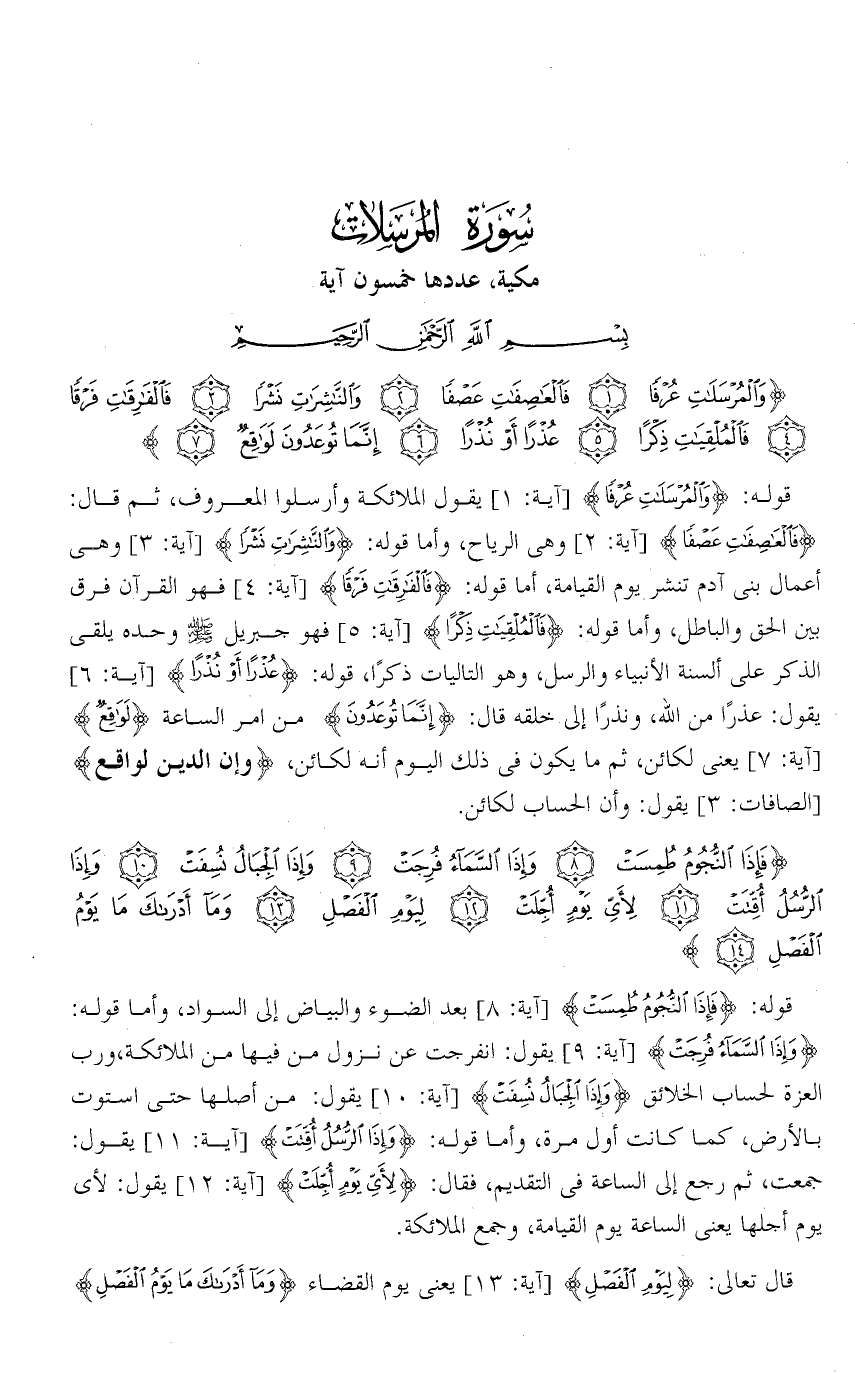 سُورَة المُرسَلات
مكية، عددها خمسون آية
بِسْمِ ٱللَّهِ ٱلرَّحْمَٰنِ ٱلرَّحِيمِ
﴿وَٱلْمُرْسَلَٰتِ عُرْفًا ۝١ فَٱلْعَٰصِفَٰتِ عَصْفًا ۝٢ وَٱلنَّٰشِرَٰتِ نَشْرًا ۝٣ فَٱلْفَٰرِقَٰتِ فَرْقًا
۝٤ فَٱلْمُلْقِيَٰتِ ذِكْرًا ۝٥ عُذْرًا أَوْ نُذْرًا ۝٦ إِنَّمَا تُوعَدُونَ لَوَٰقِعٌ ۝٧﴾
قوله: ﴿وَٱلْمُرْسَلَٰتِ عُرْفًا﴾ [آية: ١] يقول الملائكة وأرسلوا المعروف، ثم قال:
﴿فَٱلْعَٰصِفَٰتِ عَصْفًا﴾ [آية: ٢] وهى الرياح، وأما قوله: ﴿وَٱلنَّٰشِرَٰتِ نَشْرًا﴾ [آية: ٣] وهى
أعمال بنى آدم تنشر يوم القيامة، أما قوله: ﴿فَٱلْفَٰرِقَٰتِ فَرْقًا﴾ [آية: ٤] فهو القرآن فرق
بين الحق والباطل، وأما قوله: ﴿فَٱلْمُلْقِيَٰتِ ذِكْرًا﴾ [آية: ٥] فهو جبريل ﷺ وحده يلقى
الذكر على ألسنة الأنبياء والرسل، وهو التاليات ذكرًا، قوله: ﴿عُذْرًا أَوْ نُذْرًا﴾ [آية: ٦]
يقول: عذرًا من الله، ونذرًا إلى خلقه قال: ﴿إِنَّمَا تُوعَدُونَ﴾ من امر الساعة ﴿لَوَٰقِعٌ﴾
[آية: ٧] يعنى لكائن، ثم ما يكون فى ذلك اليوم أنه لكائن، ﴿وإن الدين لواقع﴾
[الصافات: ٣] يقول: وأن الحساب لكائن.
﴿فَإِذَا ٱلنُّجُومُ طُمِسَتْ ۝٨ وَإِذَا ٱلسَّمَآءُ فُرِجَتْ ۝٩ وَإِذَا ٱلْجِبَالُ نُسِفَتْ ۝١٠ وَإِذَا
ٱلرُّسُلُ أُقِّتَتْ ۝١١ لِأَيِّ يَوْمٍ أُجِّلَتْ ۝١٢ لِيَوْمِ ٱلْفَصْلِ ۝١٣ وَمَآ أَدْرَىٰكَ مَا يَوْمُ
ٱلْفَصْلِ ۝١٤﴾
قوله: ﴿فَإِذَا ٱلنُّجُومُ طُمِسَتْ﴾ [آية: ٨] بعد الضوء والبياض إلى السواد، وأما قوله:
﴿وَإِذَا ٱلسَّمَآءُ فُرِجَتْ﴾ [آية: ٩] يقول: انفرجت عن نزول من فيها من الملائكة،ورب
العزة لحساب الخلائق ﴿وَإِذَا ٱلْجِبَالُ نُسِفَتْ﴾ [آية: ١٠] يقول: من أصلها حتى استوت
بالأرض، كما كانت أول مرة، وأما قوله: ﴿وَإِذَا ٱلرُّسُلُ أُقِّتَتْ﴾ [آية: ١١] يقول:
جمعت، ثم رجع إلى الساعة فى التقديم، فقال: ﴿لِأَيِّ يَوْمٍ أُجِّلَتْ﴾ [آية: ١٢] يقول: لأى
يوم أجلها يعنى الساعة يوم القيامة، وجمع الملائكة.
قال تعالى: ﴿لِيَوْمِ ٱلْفَصْلِ﴾ [آية: ١٣] يعنى يوم القضاء ﴿وَمَآ أَدْرَىٰكَ مَا يَوْمُ ٱلْفَصْلِ﴾